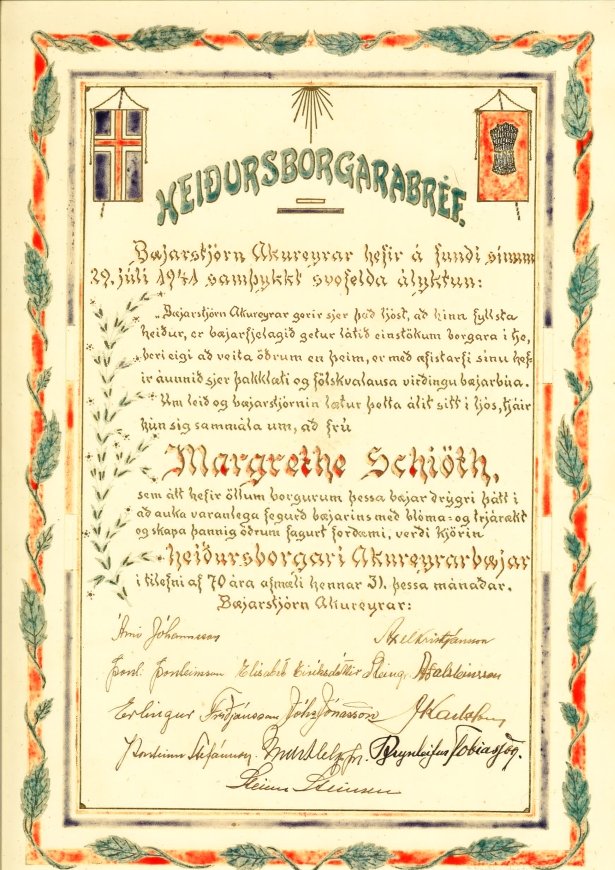 HEIÐURSBORGARABRÉF.
Bæjarstjórn Akureyrar hefir á fundi sínum
29. júlí 1941 samþykkt svofelda ályktun:
„Bæjarstjórn Akureyrar gerir sjer það ljóst, að hinn fyllsta
heiður, er bæjarfjelagið getur látið einstökum borgara í tje,
beri eigi að veita öðrum en þeim, er með æfistarfi sínu hef-
ir áunnið sjer þakklæti og fölskvalausa virðingu bæjarbúa.
Um leið og bæjarstjórnin lætur þetta álit sitt í ljós, tjáir
hún sig sammála um, að frú
Margrethe Schiöth,
sem átt hefir öllum borgurum þessa bæjar drýgri þátt í
að auka varanlega fegurð bæjarins með blóma- og trjárækt
og skapa þannig öðrum fagurt fordæmi, verði kjörin
heiðursborgari Akureyrarbæjar
í tilefni af 70 ára afmæli hennar 31. þessa mánaðar.
Bæjarstjórn Akureyrar:
Árni Jóhannsson Axel Kristjánsson
Þorl. Þorleifsson Elísabet Eiríksdóttir Steingr. Aðalsteinsson
Erlingur Friðjónsson Jóhs Jónasson J Karlsson
Þorsteinn Stefánsson. Brynleifur Tobiasson.
Steinn Steinsen